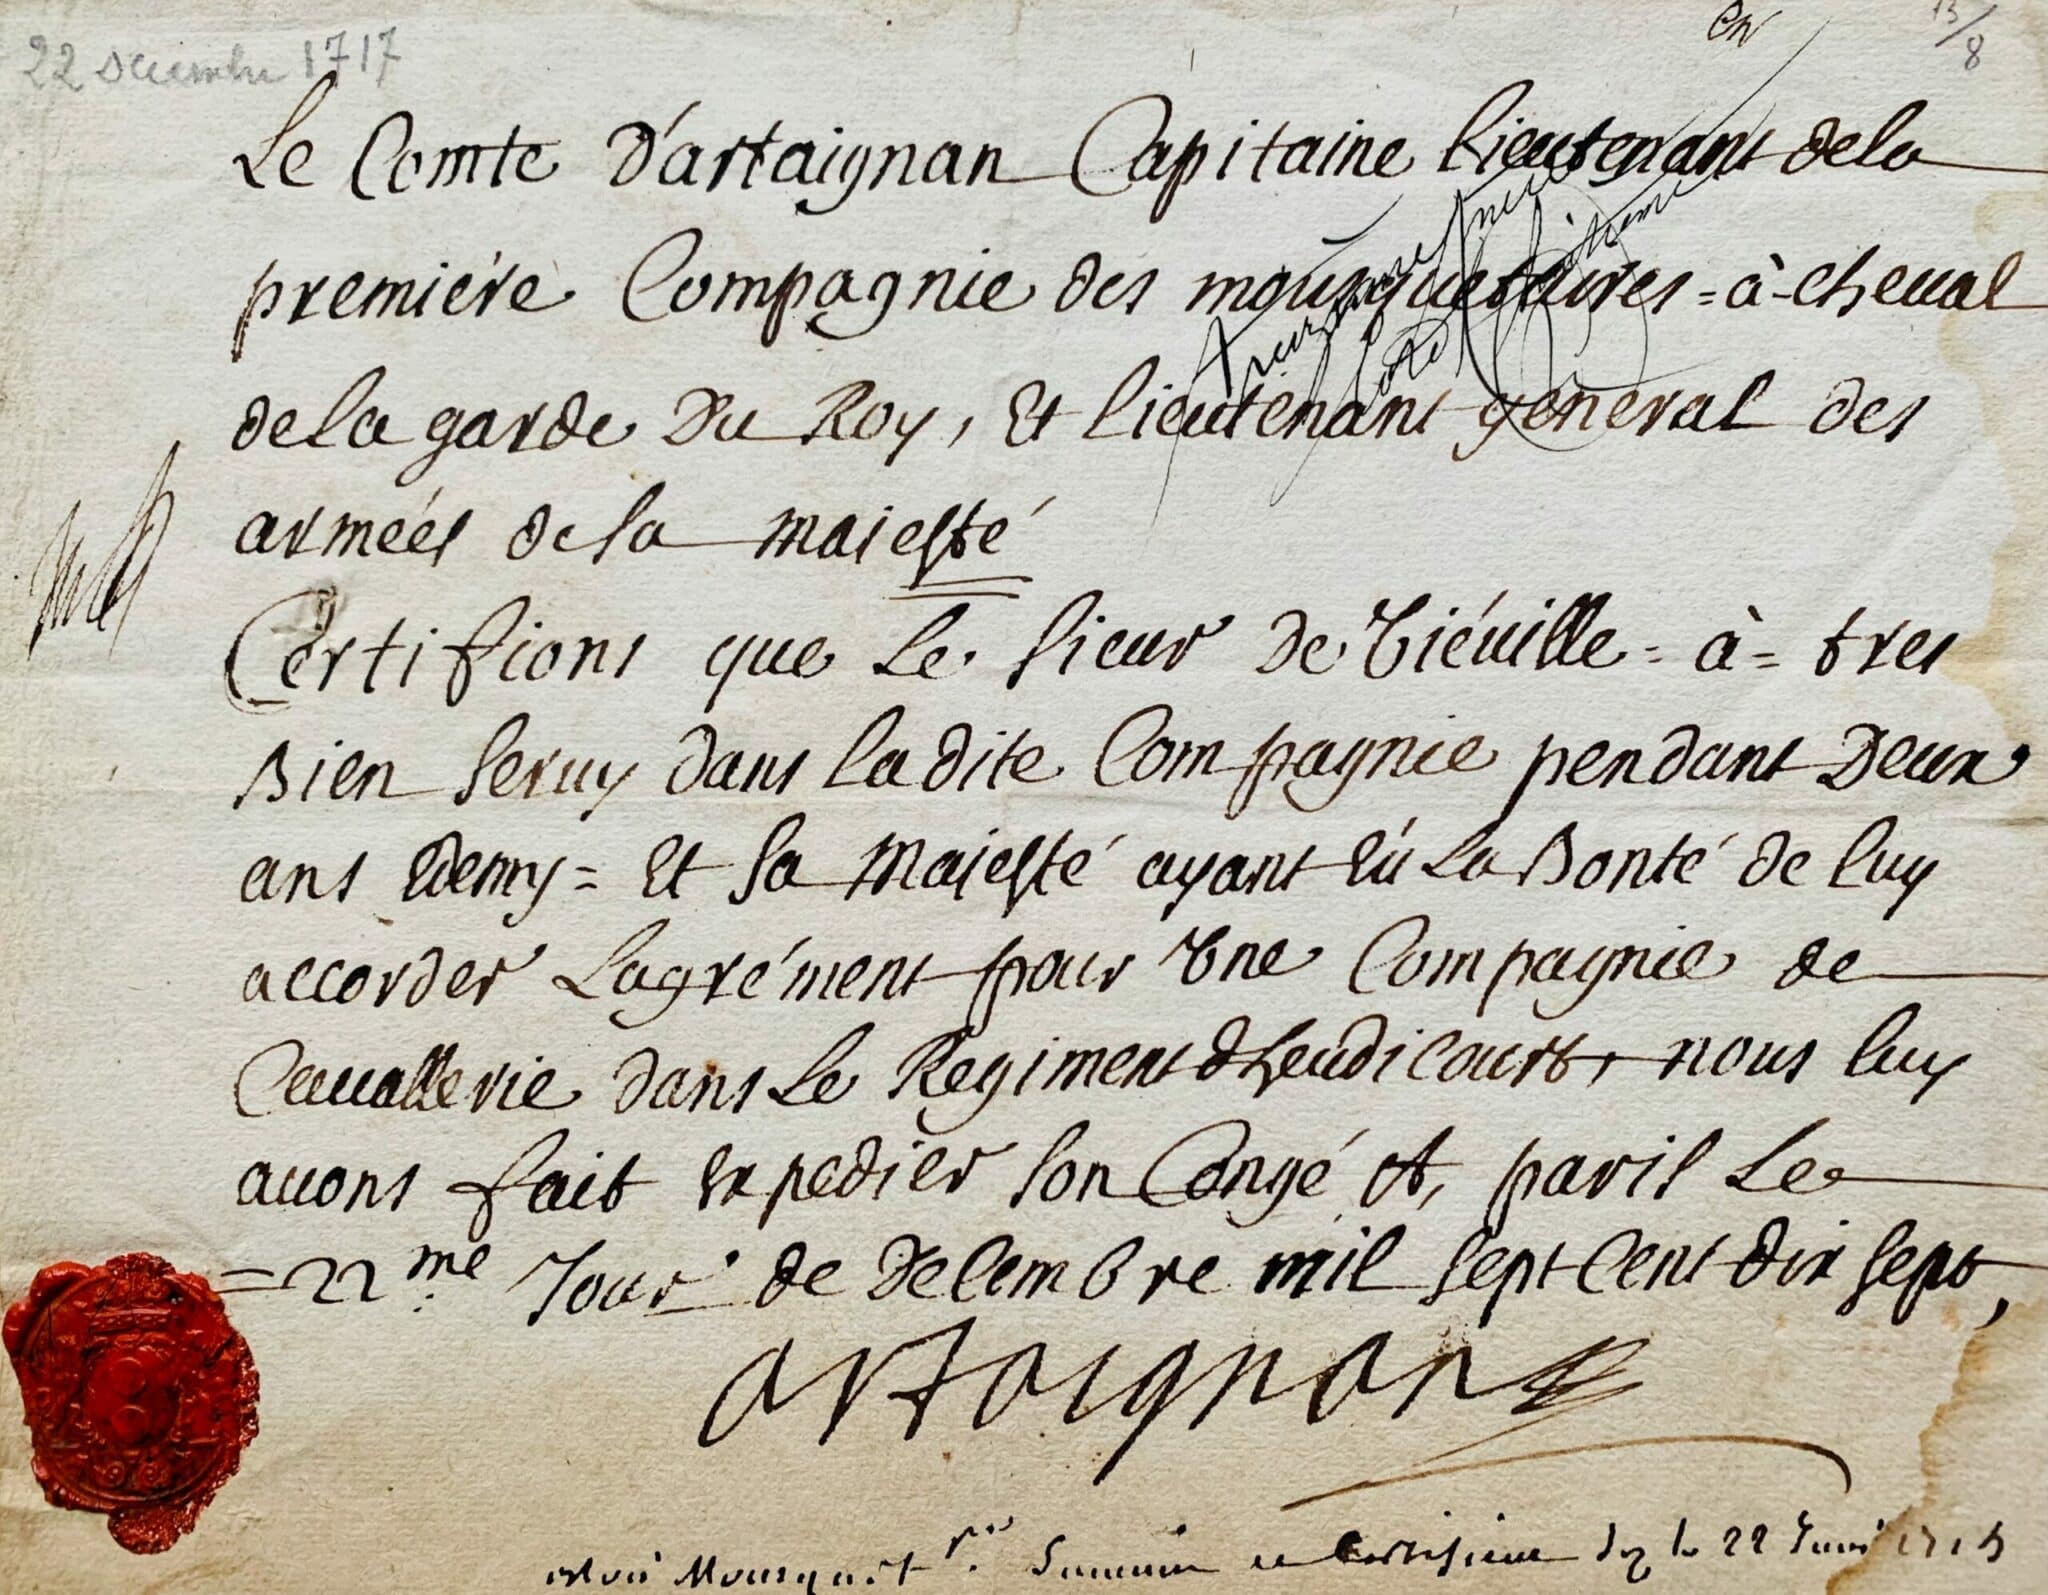 22 Decembre 1717
en
13/8
Le Comte D'artaignan Capitaine lieutenant dela
premiére Compagnie des mousquetaires = à cheual
dela garde Du Roy, Et lieutenant general des
armées de sa maiesté
Certifions que Le sieur de Tiéuille = à = tres
Bien seruy dans ladite Compagnie pendant Deux
ans Edemy = Et sa Maiesté ayant Eû La Bonté de luy
accorder Lagrément pour Vne Compagnie de
Cauallerie dans Le Regiment dheudicourt, nous luy
auons fait Expedier son Congé A, paris Le
= 22me Jour de Decembre mil sept Cent dix sept,
artaignan
le 22